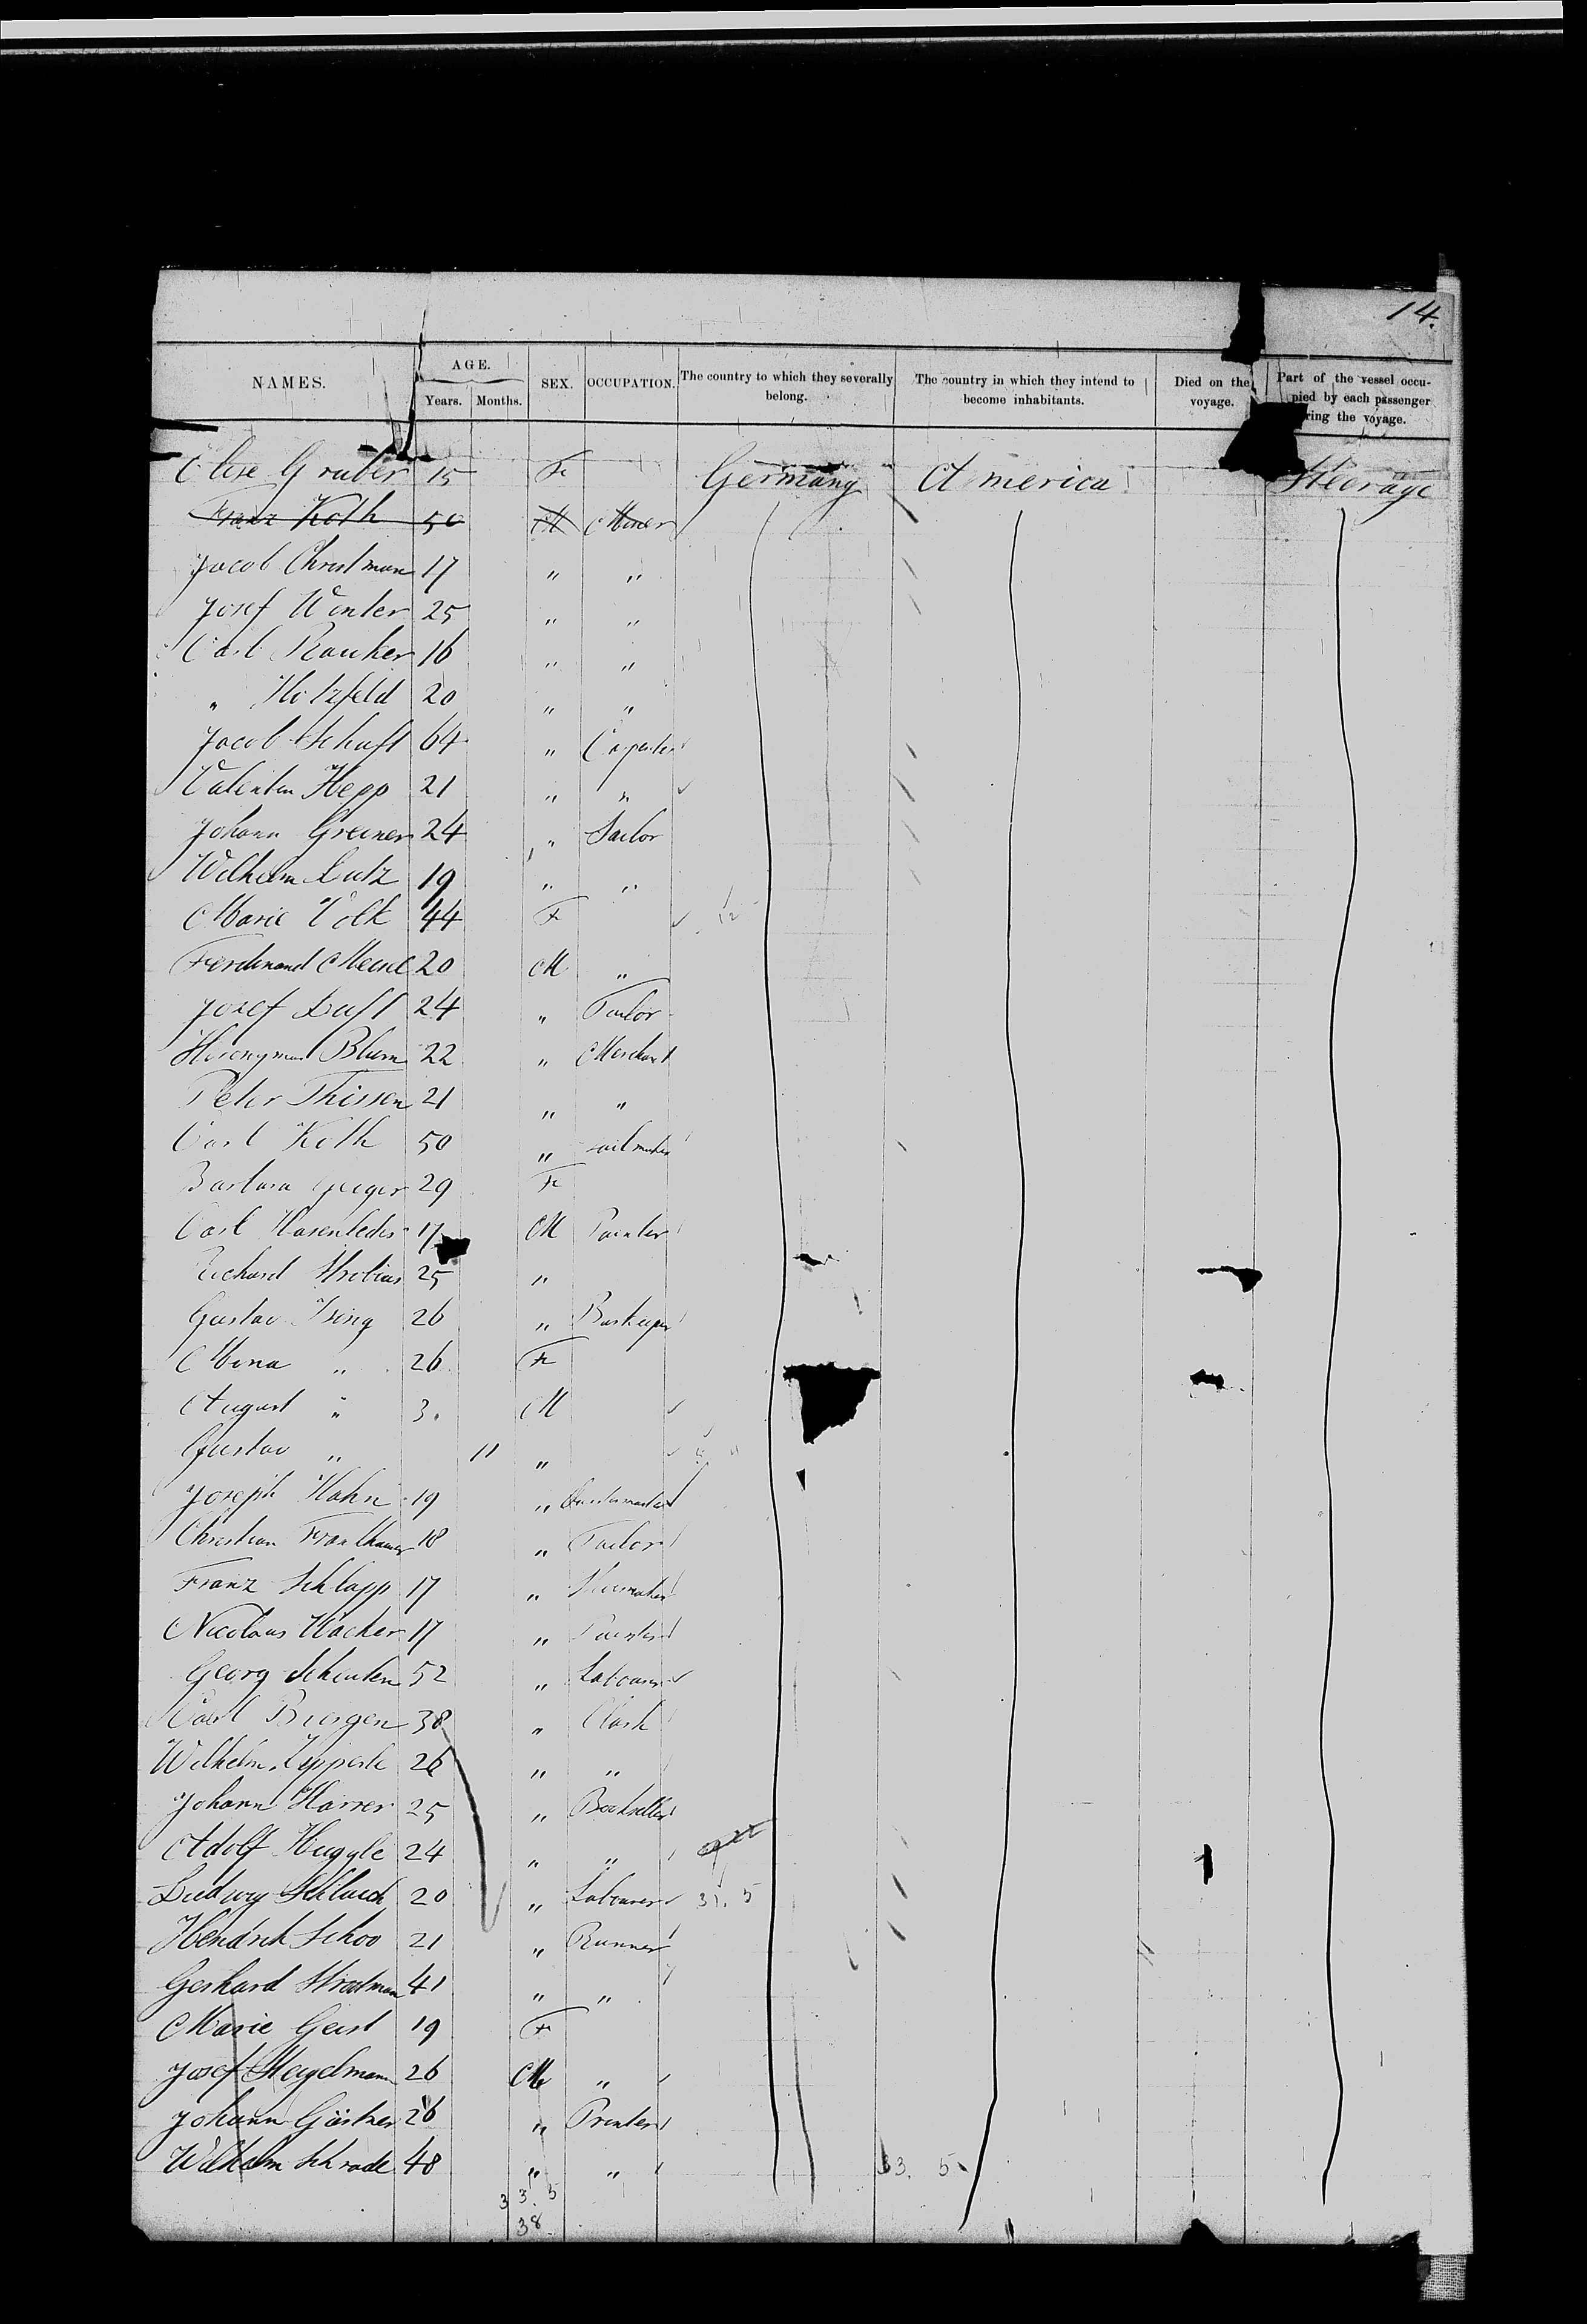 14.
NAMES. AGE. Years. Months. SEX. OCCUPATION. The country to which they severally belong. The country in which they intend to become inhabitants. Died on the voyage. Part of the vessel occupied by each passenger ring the voyage.
Elise Gruber 15 F Germany America Steerage
Franz Koth 50 M Miner
Jacob Christmann 17 " "
Josef Winter 25 " "
Carl Rauker 16 " "
" Holzfeld 20 " "
Jacob Schuft 64 " Carpenter
Valentin Hepp 21 " "
Johann Greiner 24 " Sailor
Wilhelm Lutz 19 " "
Marie Volk 44 F 12
Ferdinand Meisel 20 M "
Josef Luft 24 " Tailor
Hieronymus Blum 22 " Merchant
Peter Thissen 21 " "
Carl Koth 50 " Sailmaker
Barbara Geiger 29 F
Carl Hasenleder 17 M Painter
Richard Strobius 25 "
Gustav Ising 26 " Barkeeper
Mina " 26 F
August " 3. M
Gustav " 11 "
Joseph Hahn 19 "
Christian 18 " Tailor
Franz Schlapp 17 " Shoemaker
Nicolaus Wacker 17 " Painter
Georg Schenken 52 " Labourer
Carl Biergen 38 " Clark
Wilhelm Epperle 26 " "
Johann Harrer 25 " Bookseller
Adolf Huggle 24 " "
Ludwig Schlaich 20 " Labourer 31. 5
Hendrik Schoo 21 " Runner
Gerhard Strodtman 41 " "
Marie Geist 19 F
Josef Heydmann 26 M "
Johann Gärtner 26 " Printer
Wilhelm Schrade 48 " " 33. 5
33. 5
38